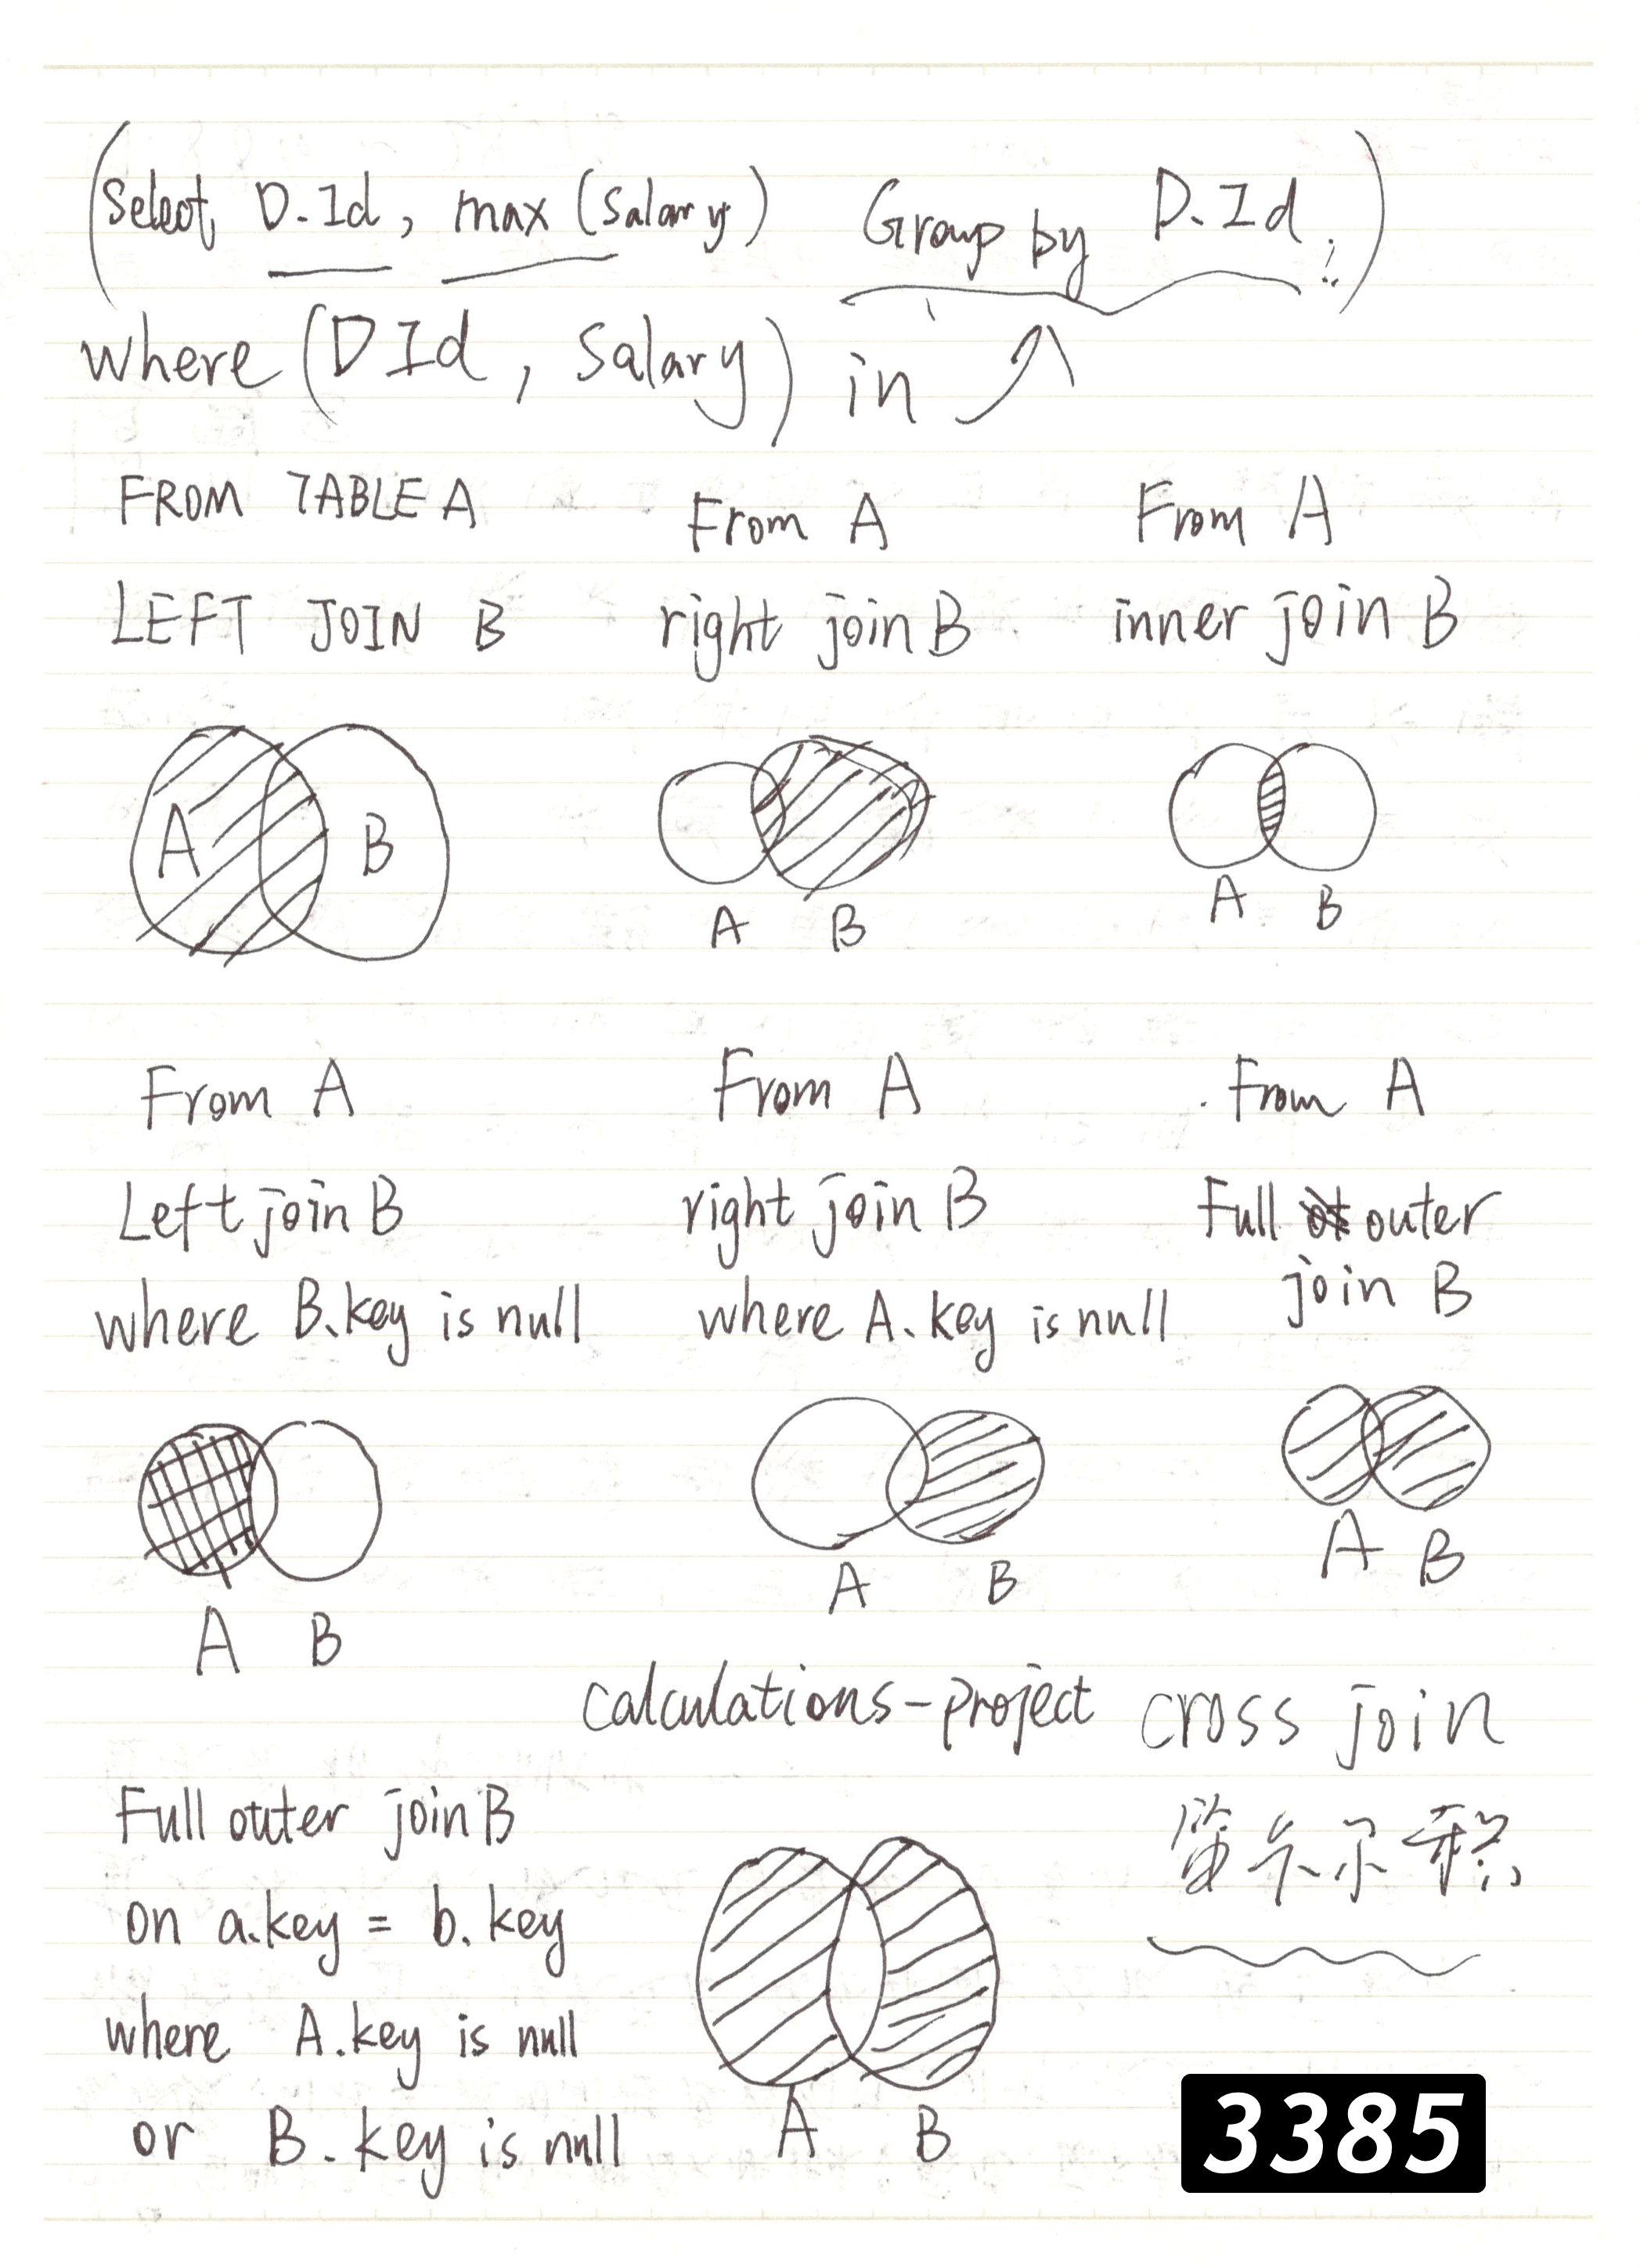 (Select D.Id, max (Salary) Group by D.Id.)
where (DId, Salary) in
FROM TABLE A
LEFT JOIN B
A B
From A
right join B
A B
From A
inner join B
A B
From A
Left join B
where B.key is null
A B
From A
right join B
where A.key is null
A B
From A
Full outer
join B
A B
calculations-project
cross join
笛卡尔积
Full outer join B
on a.key = b.key
where A.key is null
or B.key is null
A B
3385